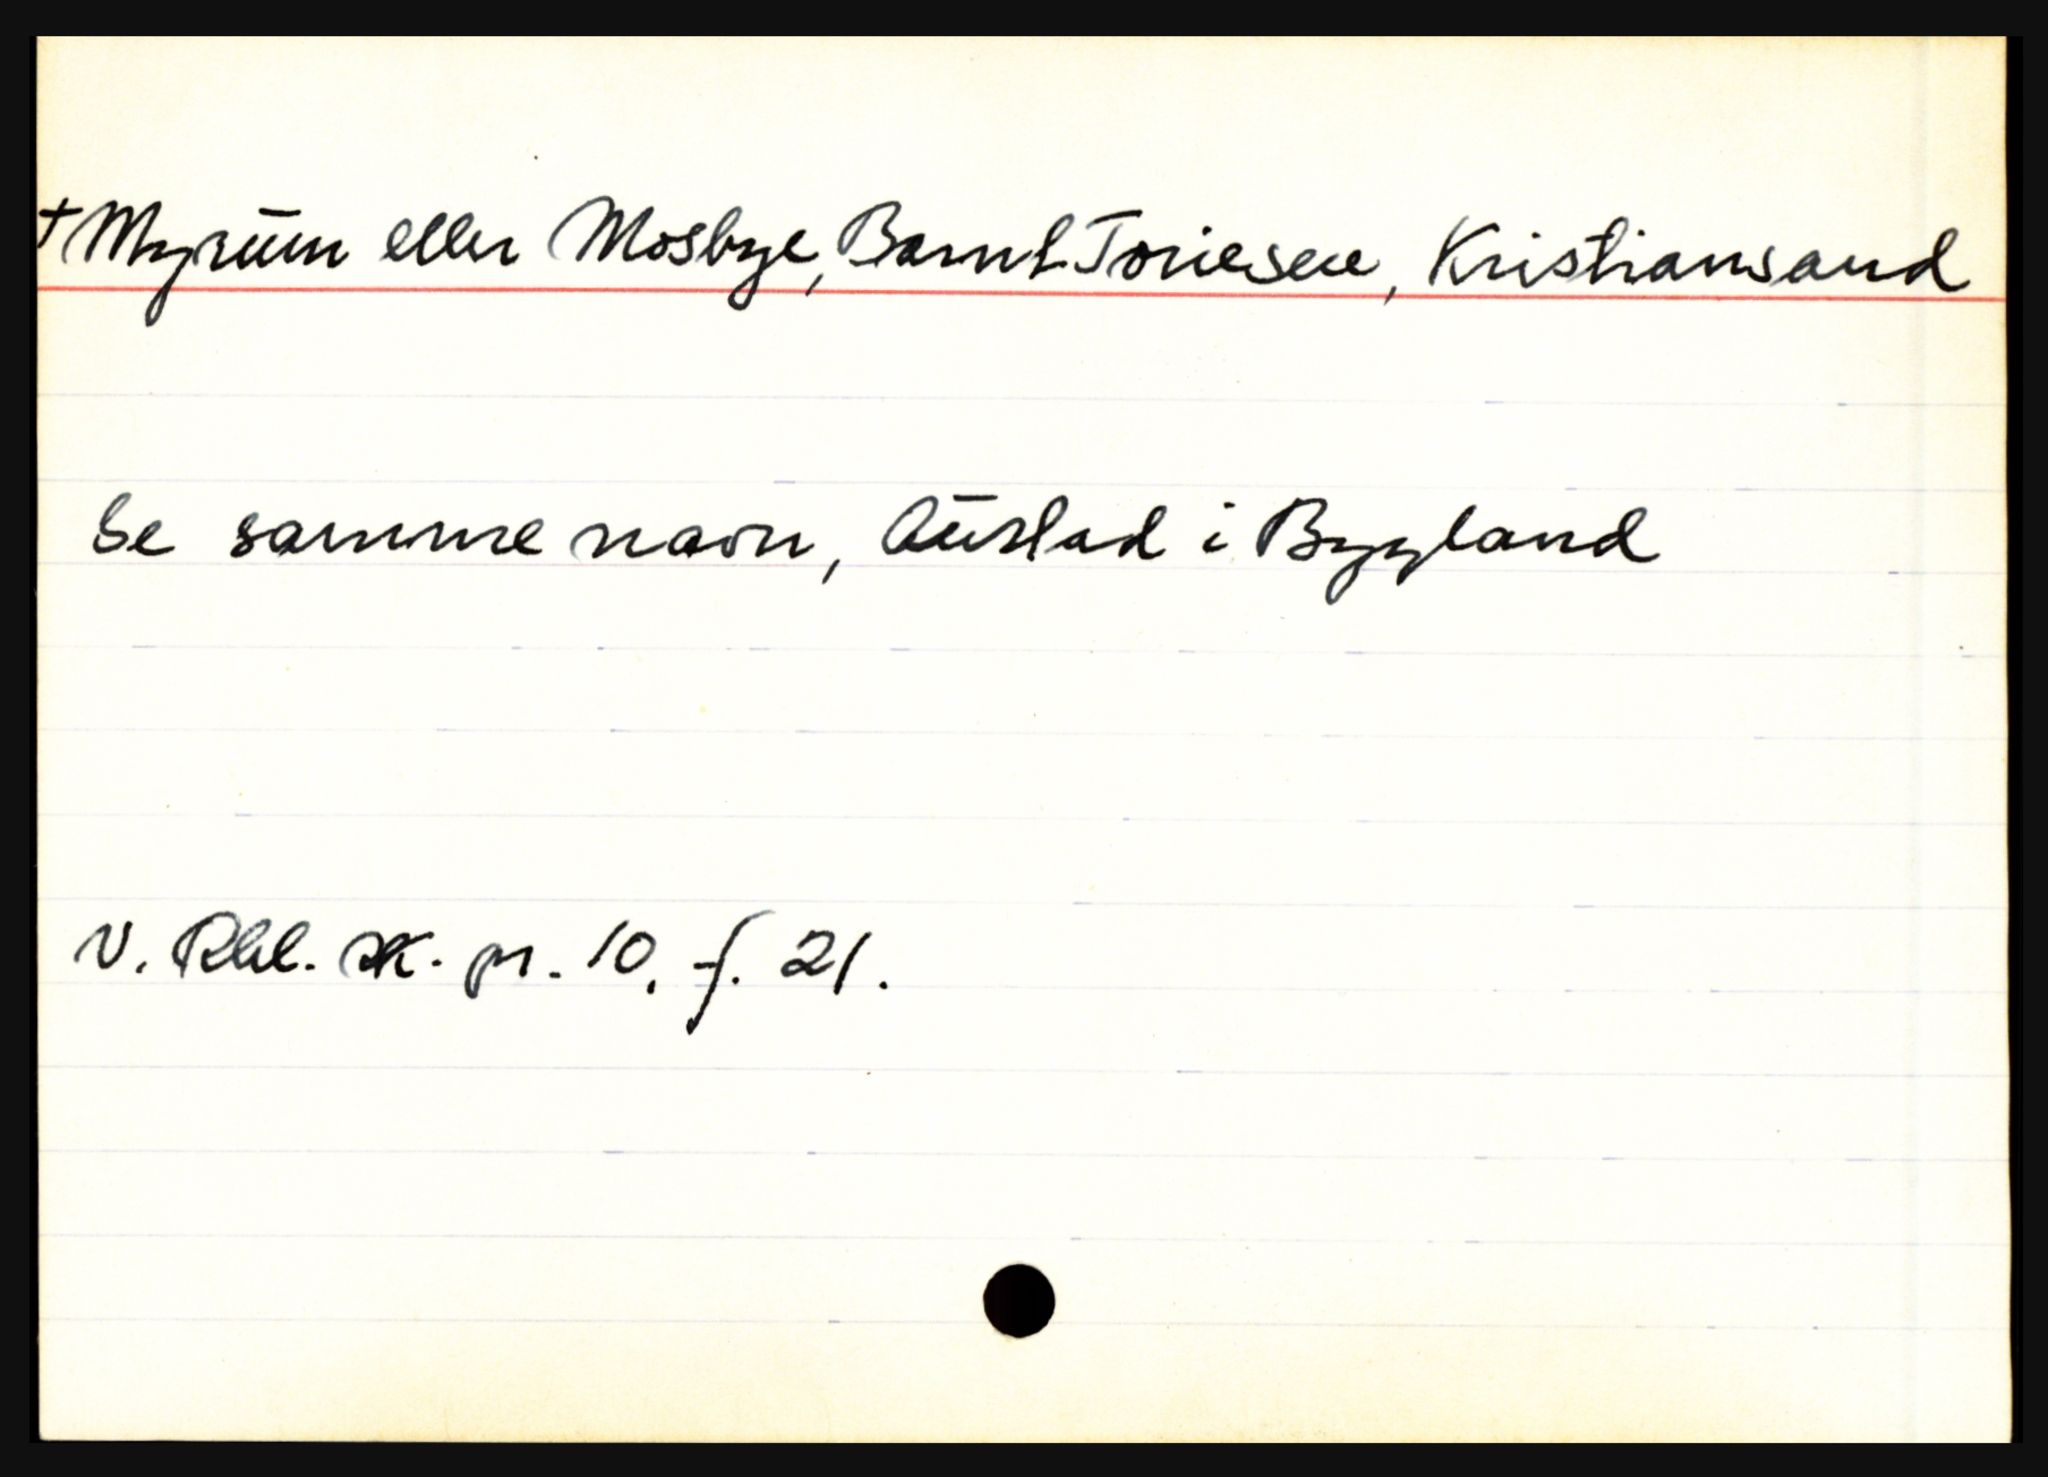 + Myrum eller Mosbye, Barnt Toriesen, Kristiansand
Se samme navn, Austad i Bygland
V. Rbl. sk. pr. 10, f. 21.